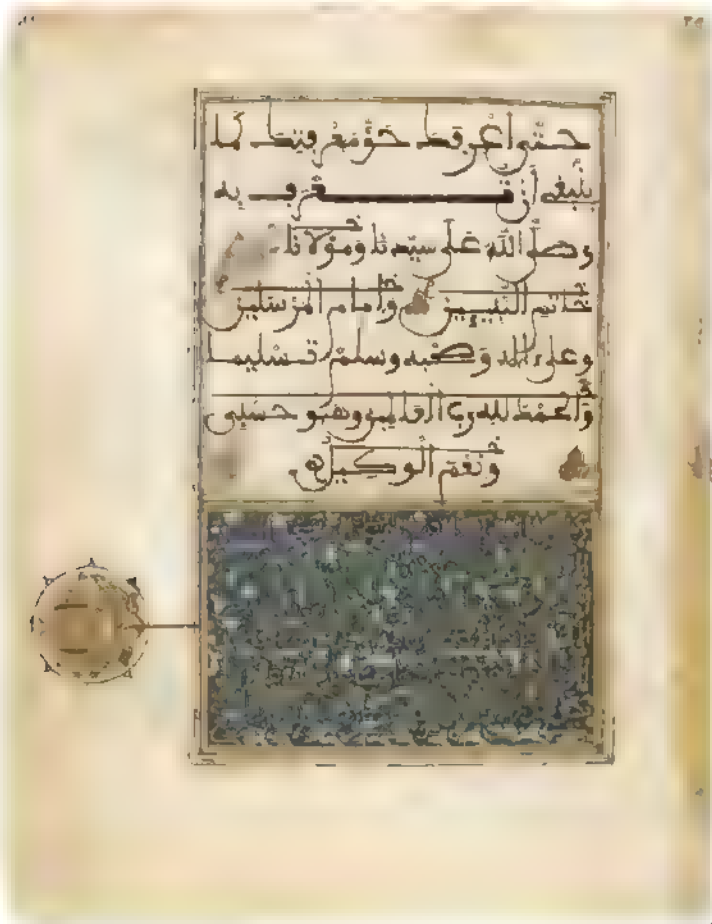 حتى أعرفك حق معرفتك كما
ينبغي أن تعرف به
وصلى الله على سيدنا ومولانا
خاتم النبيين وإمام المرسلين
وعلى ءاله وصحبه وسلم تسليما
والحمد لله رب العالمين وهو حسبي
ونعم الوكيل